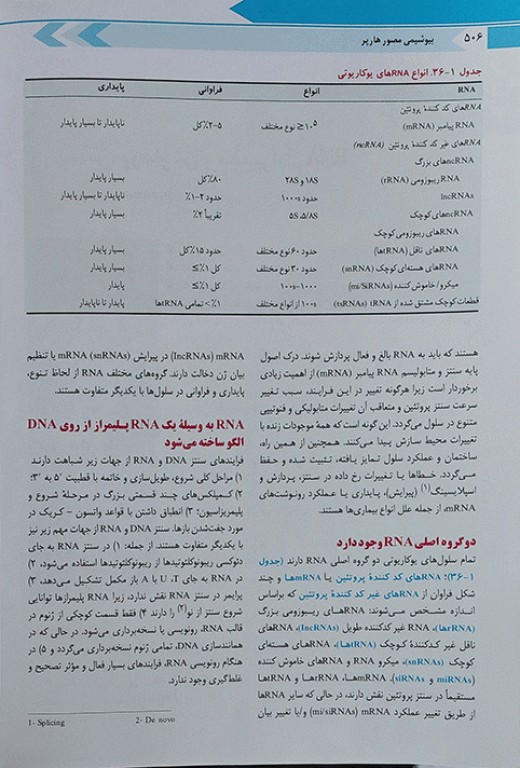 ۵۰۶ بیوشیمی مصور هارپر
جدول ۱-۳۶. انواع RNAهای یوکاریوتی
RNA انواع فراوانی پایداری
RNAهای کد کنندهٔ پروتئین
RNA پیامبر (mRNA) ≥۱۰⁵ نوع مختلف ۲-۵٪کل ناپایدار تا بسیار پایدار
RNAهای غیر کد کنندهٔ پروتئین (ncRNA)
ncRNAهای بزرگ
RNA ریبوزومی (rRNA) ۲۸S و ۱۸S ۸۰٪کل بسیار پایدار
lncRNAs حدود ۱۰۰۰s حدود ۲-۱٪ ناپایدار تا بسیار پایدار
ncRNAهای کوچک ۵S ،۵/۸S تقریباً ۲٪ بسیار پایدار
RNAهای ریبوزومی کوچک
RNAهای ناقل (tRNAها) حدود ۶۰ نوع مختلف حدود ۱۵٪کل بسیار پایدار
RNAهای هسته‌ای کوچک (snRNA) حدود ۳۰ نوع مختلف کل ۱٪≥ بسیار پایدار
میکرو/خاموش کننده (mi/SiRNAs) ۱۰۰s-۱۰۰۰ کل ۱٪≥ پایدار
قطعات کوچک مشتق شده از tRNA (tsRNAs) ۱۰۰s از انواع مختلف ۱٪> تمامی tRNAها پایدار تا ناپایدار
هستند که باید به RNA بالغ و فعال پردازش شوند. درک اصول
پایه سنتز و متابولیسم RNA پیامبر (mRNA) از اهمیت زیادی
برخوردار است زیرا هرگونه تغییر در این فرایند، سبب تغییر
سرعت سنتز پروتئین و متعاقب آن تغییرات متابولیکی و فنوتیپی
متنوع در سلول می‌گردد. این گونه است که همهٔ موجودات زنده با
تغییرات محیط سازش پیدا می‌کنند. همچنین از همین راه،
ساختمان و عملکرد سلول تمایز یافته، تثبیت شده و حفظ
می‌گردد. خطاها یا تغییرات رخ داده در سنتز، پردازش و
اسپلایسینگ(۱) (پیرایش)، پایداری یا عملکرد رونوشت‌های
mRNA، از جمله علل انواع بیماری‌ها هستند.
دو گروه اصلی RNA وجود دارد
تمام سلول‌های یوکاریوتی دو گروه اصلی RNA دارند (جدول
۱-۳۶): RNAهای کد کنندهٔ پروتئین یا mRNAها و چند
شکل فراوان از RNAهای غیر کد کنندهٔ پروتئین که براساس
اندازه مشخص می‌شوند: RNAهای ریبوزومی بزرگ
(rRNAها)، RNA غیر کدکننده طویل (lncRNAs)، RNAهای
ناقل غیر کدکنندهٔ کوچک (tRNAها)، RNAهای هسته‌ای
کوچک (snRNAs)، میکرو RNA و RNAهای خاموش کننده
(miRNAs و siRNAs). mRNAها، rRNAها و tRNAها
مستقیماً در سنتز پروتئین نقش دارند، در حالی که سایر RNAها
از طریق تغییر عملکرد mRNA (mi/siRNAs) و/یا تغییر بیان
mRNA (lncRNAs) در پیرایش mRNA (snRNAs) یا تنظیم
بیان ژن دخالت دارند. گروه‌های مختلف RNA از لحاظ تنوع،
پایداری و فراوانی در سلول‌ها با یکدیگر متفاوت هستند.
RNA به وسیلهٔ یک RNA پلیمراز از روی DNA
الگو ساخته می‌شود
فرایندهای سنتز DNA و RNA از جهات زیر شباهت دارند
۱) مراحل کلی شروع، طویل‌سازی و خاتمه با قطبیت ′۵ به ′۳؛
۲) کمپلکس‌های چند قسمتی بزرگ در مرحلهٔ شروع و
پلیمریزاسیون؛ ۳) انطباق داشتن با قواعد واتسون - کریک در
مورد جفت‌شدن بازها. سنتز DNA و RNA از جهات مهم زیر نیز
با یکدیگر متفاوت هستند. از جمله: ۱) در سنتز RNA به جای
دئوکسی ریبونوکلئوتیدها از ریبونوکلئوتیدها استفاده می‌شود، ۲)
در RNA به جای U ،T با A باز مکمل تشکیل می‌دهد، ۳)
پرایمر در سنتز RNA نقش ندارد، زیرا RNA پلیمرازها توانایی
شروع سنتز از نو(۲) را دارند ۴) فقط قسمت کوچکی از ژنوم در
قالب RNA، رونویسی یا نسخه‌برداری می‌شود. در حالی که در
همانندسازی DNA، تمامی ژنوم نسخه‌برداری می‌گردد و ۵) در
هنگام رونویسی RNA، فرایندهای بسیار فعال و مؤثر تصحیح و
غلط‌گیری وجود ندارد.
1- Splicing 2- De novo